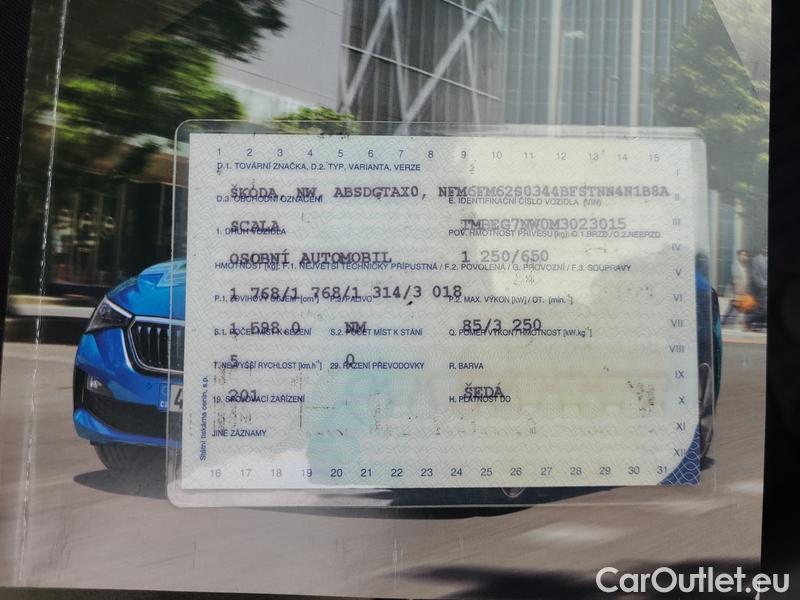 1 2 3 4 5 6 7 8 9 10 11 12 13 14 15
D.1. TOVÁRNÍ ZNAČKA, D.2. TYP, VARIANTA, VERZE I
ŠKODA, NW, ABSDGTAX0, NFM6FM62S0344BFSTNN4N1B8A
D.3. OBCHODNÍ OZNAČENÍ E. IDENTIFIKAČNÍ ČÍSLO VOZIDLA (VIN) II
SCALA TMBEG7NW0M3023015 III
1. DRUH VOZIDLA POV. HMOTNOST PŘÍVĚSU [kg]: O.1.BRZD./O.2.NEBRZD.
OSOBNÍ AUTOMOBIL 1 250/650 IV
HMOTNOST [kg]: F.1. NEJVĚTŠÍ TECHNICKY PŘÍPUSTNÁ / F.2. POVOLENÁ / G. PROVOZNÍ / F.3. SOUPRAVY V
1 768/1 768/1 314/3 018
P.1. ZDVIHOVÝ OBJEM [cm³] P.3. PALIVO P.2. MAX. VÝKON [kW] / OT. [min⁻¹] VI
1 598,0 NM 85/3 250 VII
S.1. POČET MÍST K SEZENÍ S.2. POČET MÍST K STÁNÍ Q. POMĚR VÝKON/HMOTNOST [kW.kg⁻¹]
5 0 VIII
T. NEJVYŠŠÍ RYCHLOST [km.h⁻¹] 29. ŘAZENÍ PŘEVODOVKY R. BARVA
201 ŠEDÁ IX
19. SPOJOVACÍ ZAŘÍZENÍ H. PLATNOST DO X
XI
JINÉ ZÁZNAMY
XII
16 17 18 19 20 21 22 23 24 25 26 27 28 29 30 31
Státní tiskárna cenin, s.p.
CarOutlet.eu